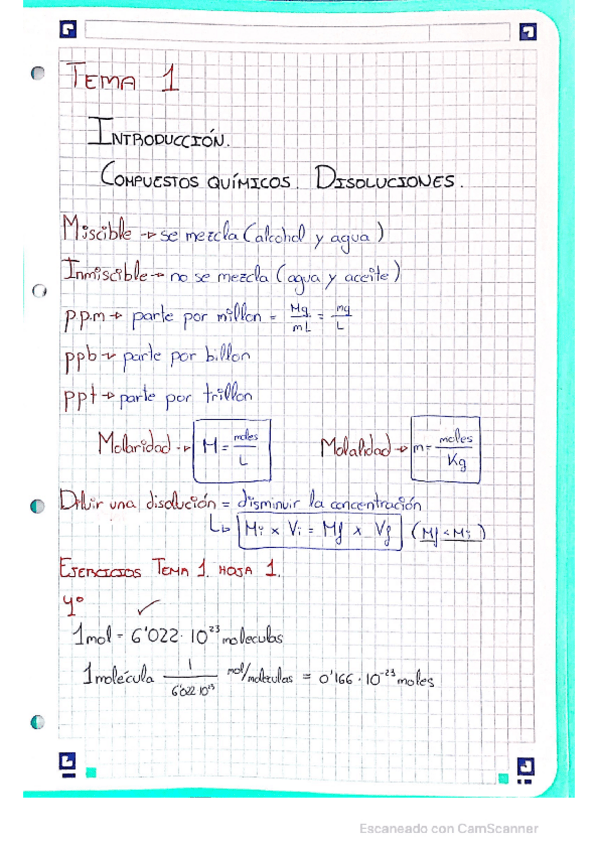 TEMA 1
INTRODUCCIÓN.
COMPUESTOS QUÍMICOS. DISOLUCIONES.
Miscible → se mezcla (alcohol y agua)
Inmiscible → no se mezcla (agua y aceite)
p.p.m → parte por millon = Mg/mL = mg/L
ppb → parte por billon
ppt → parte por trillon
Molaridad → M = moles/L Molalidad → m = moles/Kg
Diluir una disolución = disminuir la concentración
↳ Mi x Vi = Mf x Vf (Mf < Mi)
EJERCICIOS TEMA 1. HOJA 1.
4º
1mol = 6'022 · 10²³ moleculas
1 molécula 1/6'022·10²³ mol/moleculas = 0'166 · 10⁻²³ moles
Escaneado con CamScanner